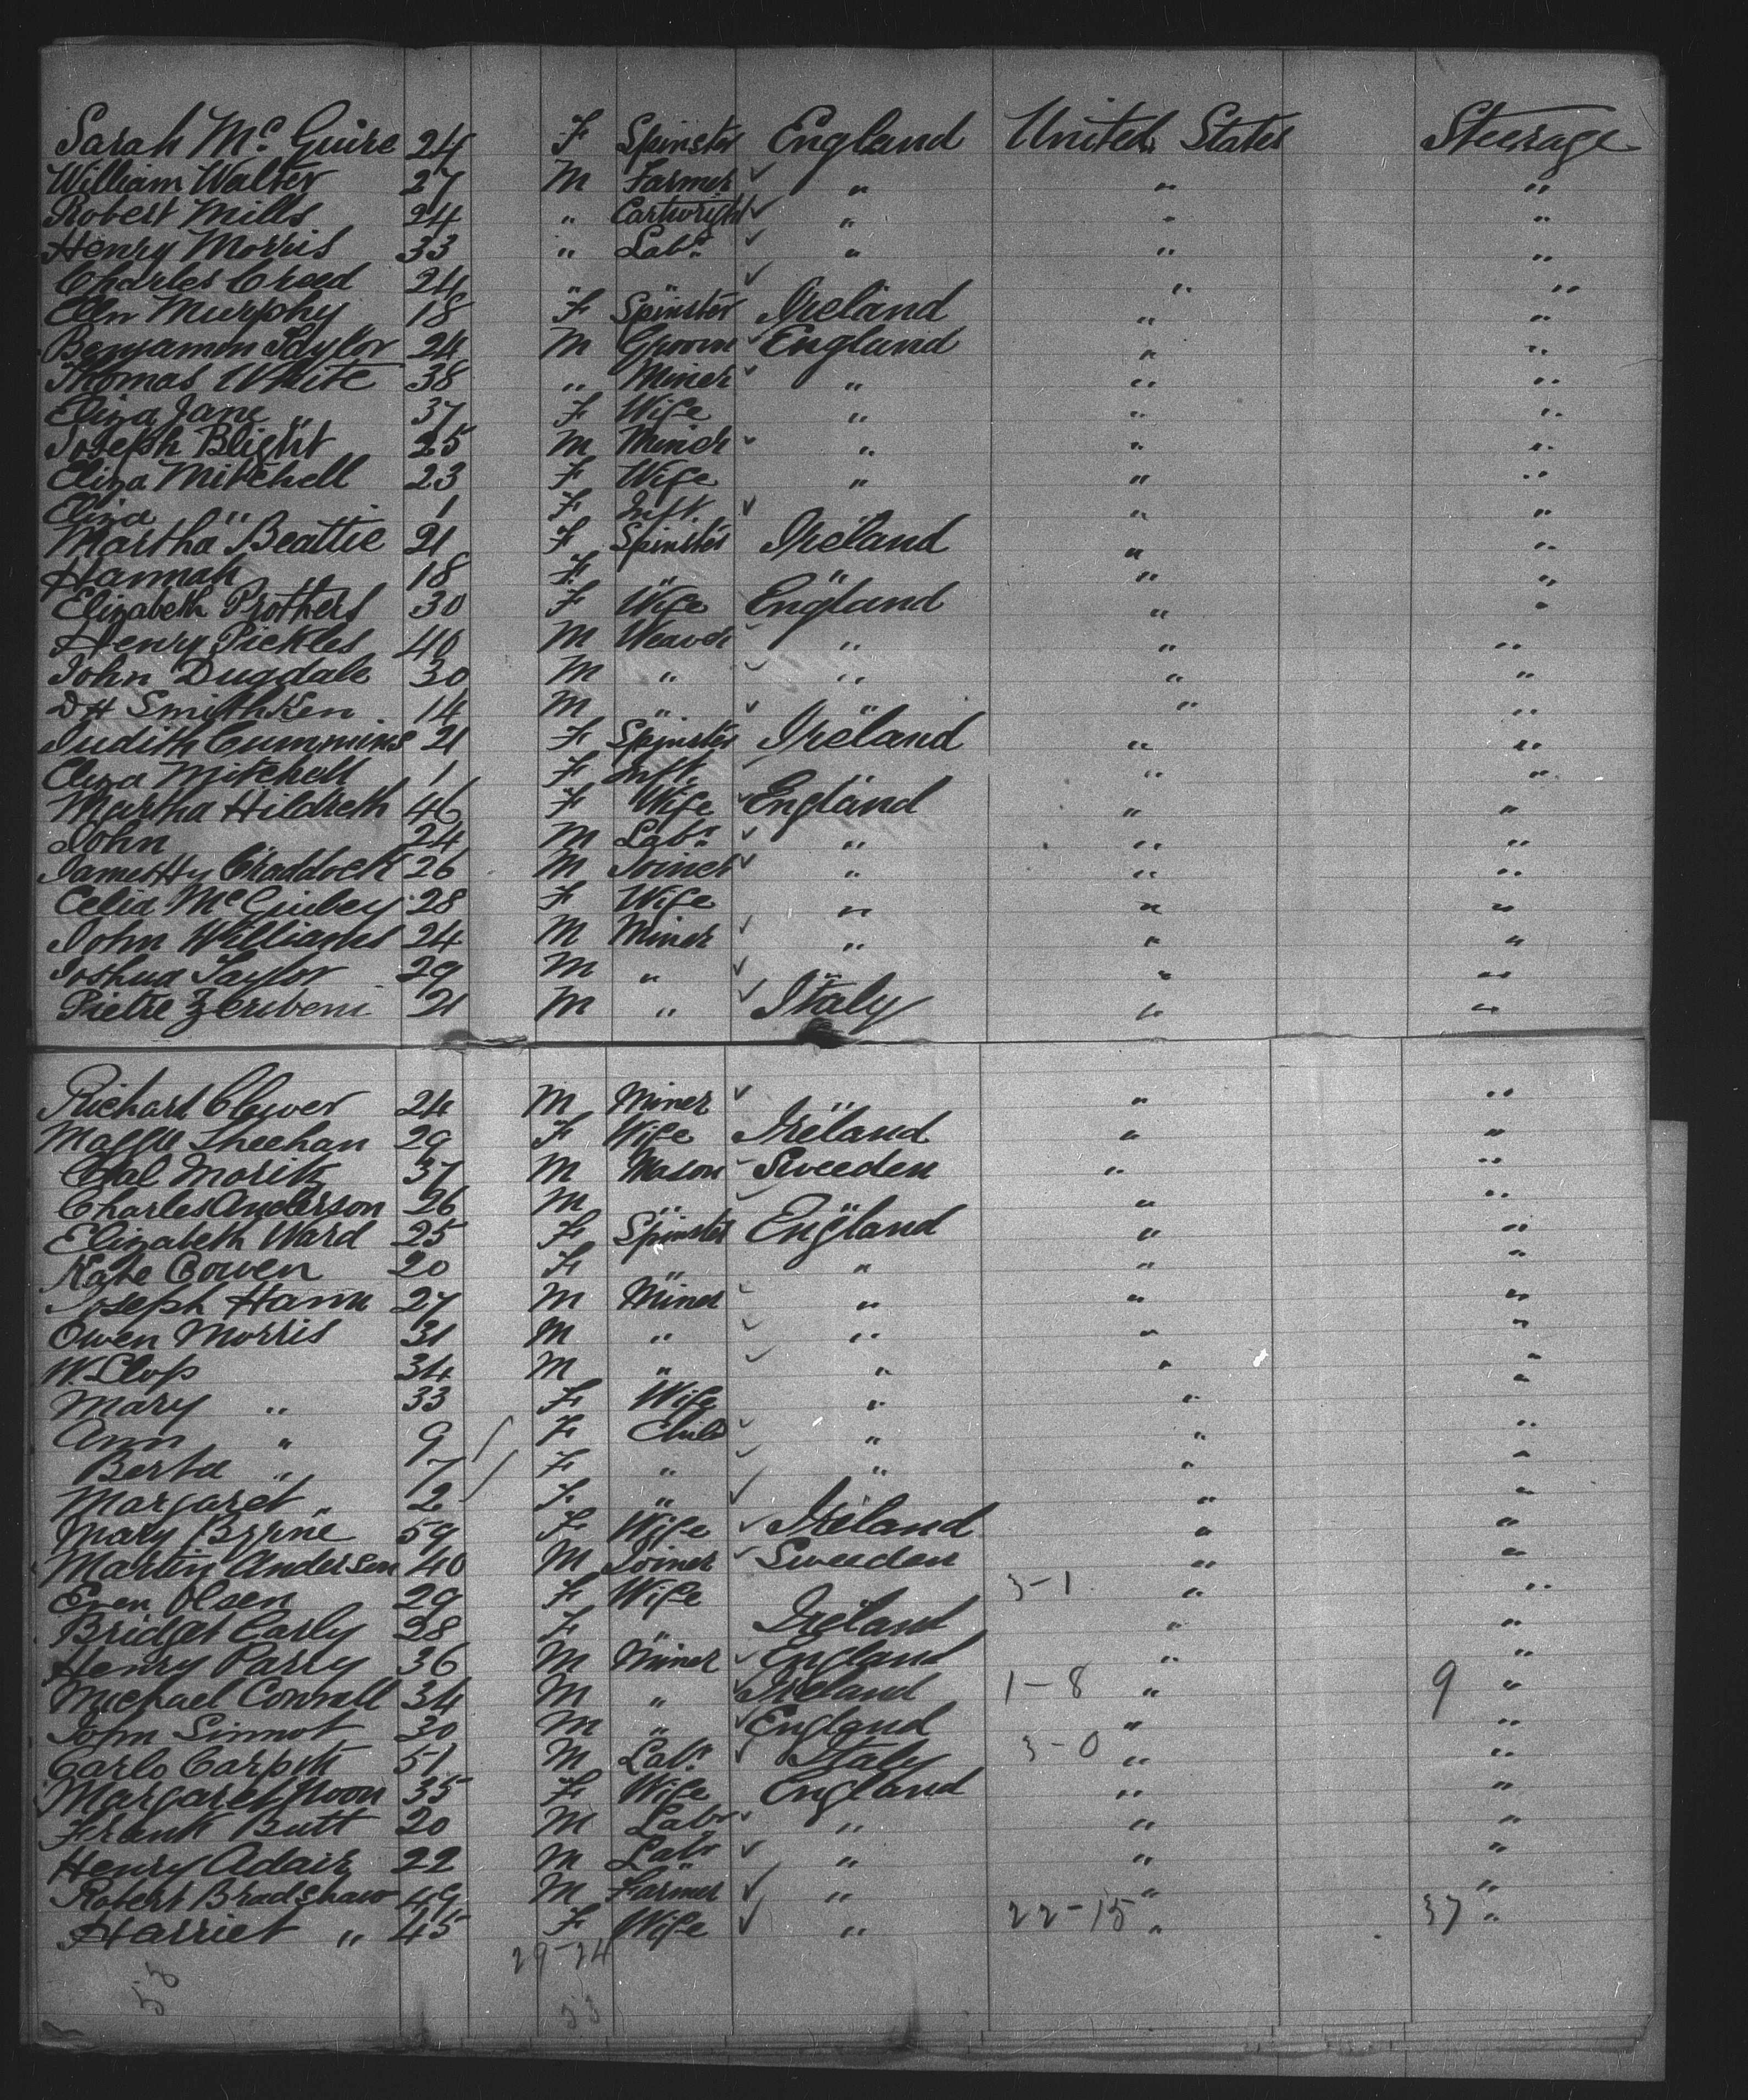 Sarah McGuire 24 F Spinster England United States Steerage
William Walter 27 M Farmer " " "
Robert Mills 24 " Cartwright " " "
Henry Morris 33 " Labr " " "
Charles Creed 24 " " " " "
Elln Murphy 18 F Spinster Ireland " "
Benjamin Taylor 24 M Groom England " "
Thomas White 38 " Miner " " "
Eliza Jane " 37 F Wife " " "
Joseph Blight 25 M Miner " " "
Eliza Mitchell 23 F Wife " " "
Eliza " 1 F Inft " " "
Martha Beattie 21 F Spinster Ireland " "
Hannah " 18 F " " " "
Elizabeth Prothers 30 F Wife England " "
Henry Pickles 40 M Weaver " " "
John Dugdale 30 M " " " "
DH Smithken 14 M " " " "
Judith Cummins 21 F Spinster Ireland " "
Eliza Mitchell 1 F Inft. " " "
Martha Hildreth 46 F Wife England " "
John " 24 M Labr " " "
James Hy Craddock 26 M Joiner " " "
Celia 28 F Wife " " "
John Williams 24 M Miner " " "
Joshua Taylor 29 M " " " "
Pietre Zeruboni 21 M " Italy " "
Richard Clywer 24 M Miner " " "
Maggie Sheehan 29 F Wife Ireland " "
Moritz 37 M Mason Sweeden " "
Charles Anderson 26 M " " " "
Elizabeth Ward 25 F Spinster England " "
Kate Cowen 20 F " " " "
Joseph Hann 27 M Miner " " "
Owen Morris 31 M " " " "
W. 34 M " " " "
Mary " 33 F Wife " " "
Ann " 9 F Child " " "
Berta " 7 F " " " "
Margaret " 2 F " " " "
Mary Byrne 59 F Wife Ireland " "
Martin Andersen 40 M Joiner Sweeden " "
Even Olsen 29 F Wife " 3-1 " "
Bridget Carly 28 F " Ireland " "
Henry Parry 36 M Miner England " "
Michael Conrall 34 M " Ireland 1-8 " 9 "
John Sinnot 30 M " England " "
Carlo 51 M Labr Italy 3-0 " "
Margaret Noon 35 F Wife England " "
Frank Butt 20 M Labr " " "
Henry Adair 22 M Labr " " "
Robert Bradshaw 49 M Farmer " " "
Harriet " 45 F Wife " 22-15 " 37 "
29-24
53
53